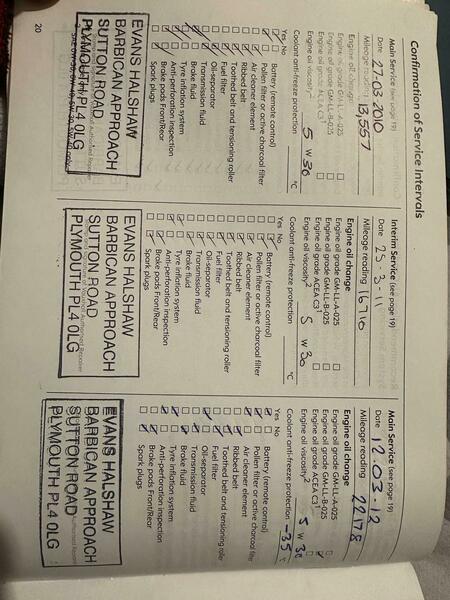 Confirmation of Service Intervals
Main Service (see page 19)
Date 27.03.2010
Mileage reading 13,557
Engine oil change
Engine oil grade GM-LL-A-025
Engine oil grade GM-LL-B-025
Engine oil grade ACEA C3
Engine oil viscosity² 5 W 30
Coolant anti-freeze protection °C
Yes No
Battery (remote control)
Pollen filter or active charcoal filter
Air cleaner element
Ribbed belt
Toothed belt and tensioning roller
Fuel filter
Oil-separator
Transmission fluid
Brake fluid
Tyre inflation system
Anti-perforation inspection
Brake pads Front/Rear
Spark plugs
EVANS HALSHAW
BARBICAN APPROACH
SUTTON ROAD
PLYMOUTH PL4 0LG
Interim Service (see page 19)
Date 25-3-11
Mileage reading 16716
Engine oil change
Engine oil grade GM-LL-A-025
Engine oil grade GM-LL-B-025
Engine oil grade ACEA C3¹
Engine oil viscosity² 5 W 30
Coolant anti-freeze protection °C
Yes No
Battery (remote control)
Pollen filter or active charcoal filter
Air cleaner element
Ribbed belt
Toothed belt and tensioning roller
Fuel filter
Oil-separator
Transmission fluid
Brake fluid
Tyre inflation system
Anti-perforation inspection
Brake pads Front/Rear
Spark plugs
EVANS HALSHAW
BARBICAN APPROACH
SUTTON ROAD
PLYMOUTH PL4 0LG
Main Service (see page 19)
Date 12.03.12
Mileage reading 22178
Engine oil change
Engine oil grade GM-LL-A-025
Engine oil grade GM-LL-B-025
Engine oil grade ACEA C3¹
Engine oil viscosity² 5 W 30
Coolant anti-freeze protection -35 °C
Yes No
Battery (remote control)
Pollen filter or active charcoal filter
Air cleaner element
Ribbed belt
Toothed belt and tensioning roller
Fuel filter
Oil-separator
Transmission fluid
Brake fluid
Tyre inflation system
Anti-perforation inspection
Brake pads Front/Rear
Spark plugs
EVANS HALSHAW
BARBICAN APPROACH
SUTTON ROAD
PLYMOUTH PL4 0LG
20